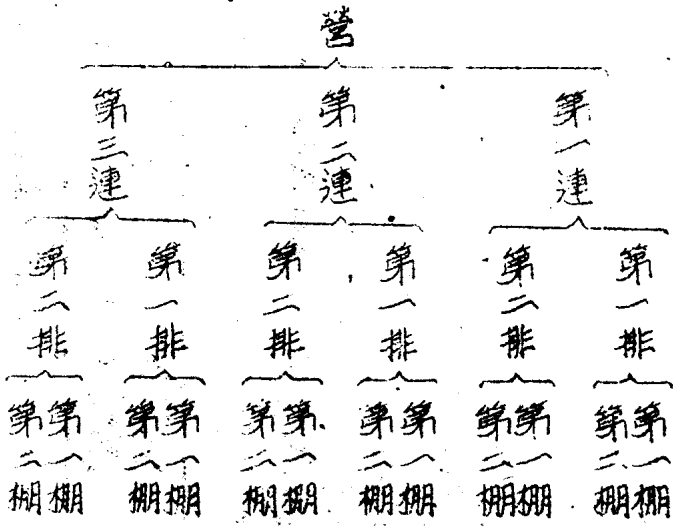 營
第一連
第二連
第三連
第一排
第二排
第一排
第二排
第一排
第二排
第一棚
第二棚
第一棚
第二棚
第一棚
第二棚
第一棚
第二棚
第一棚
第二棚
第一棚
第二棚